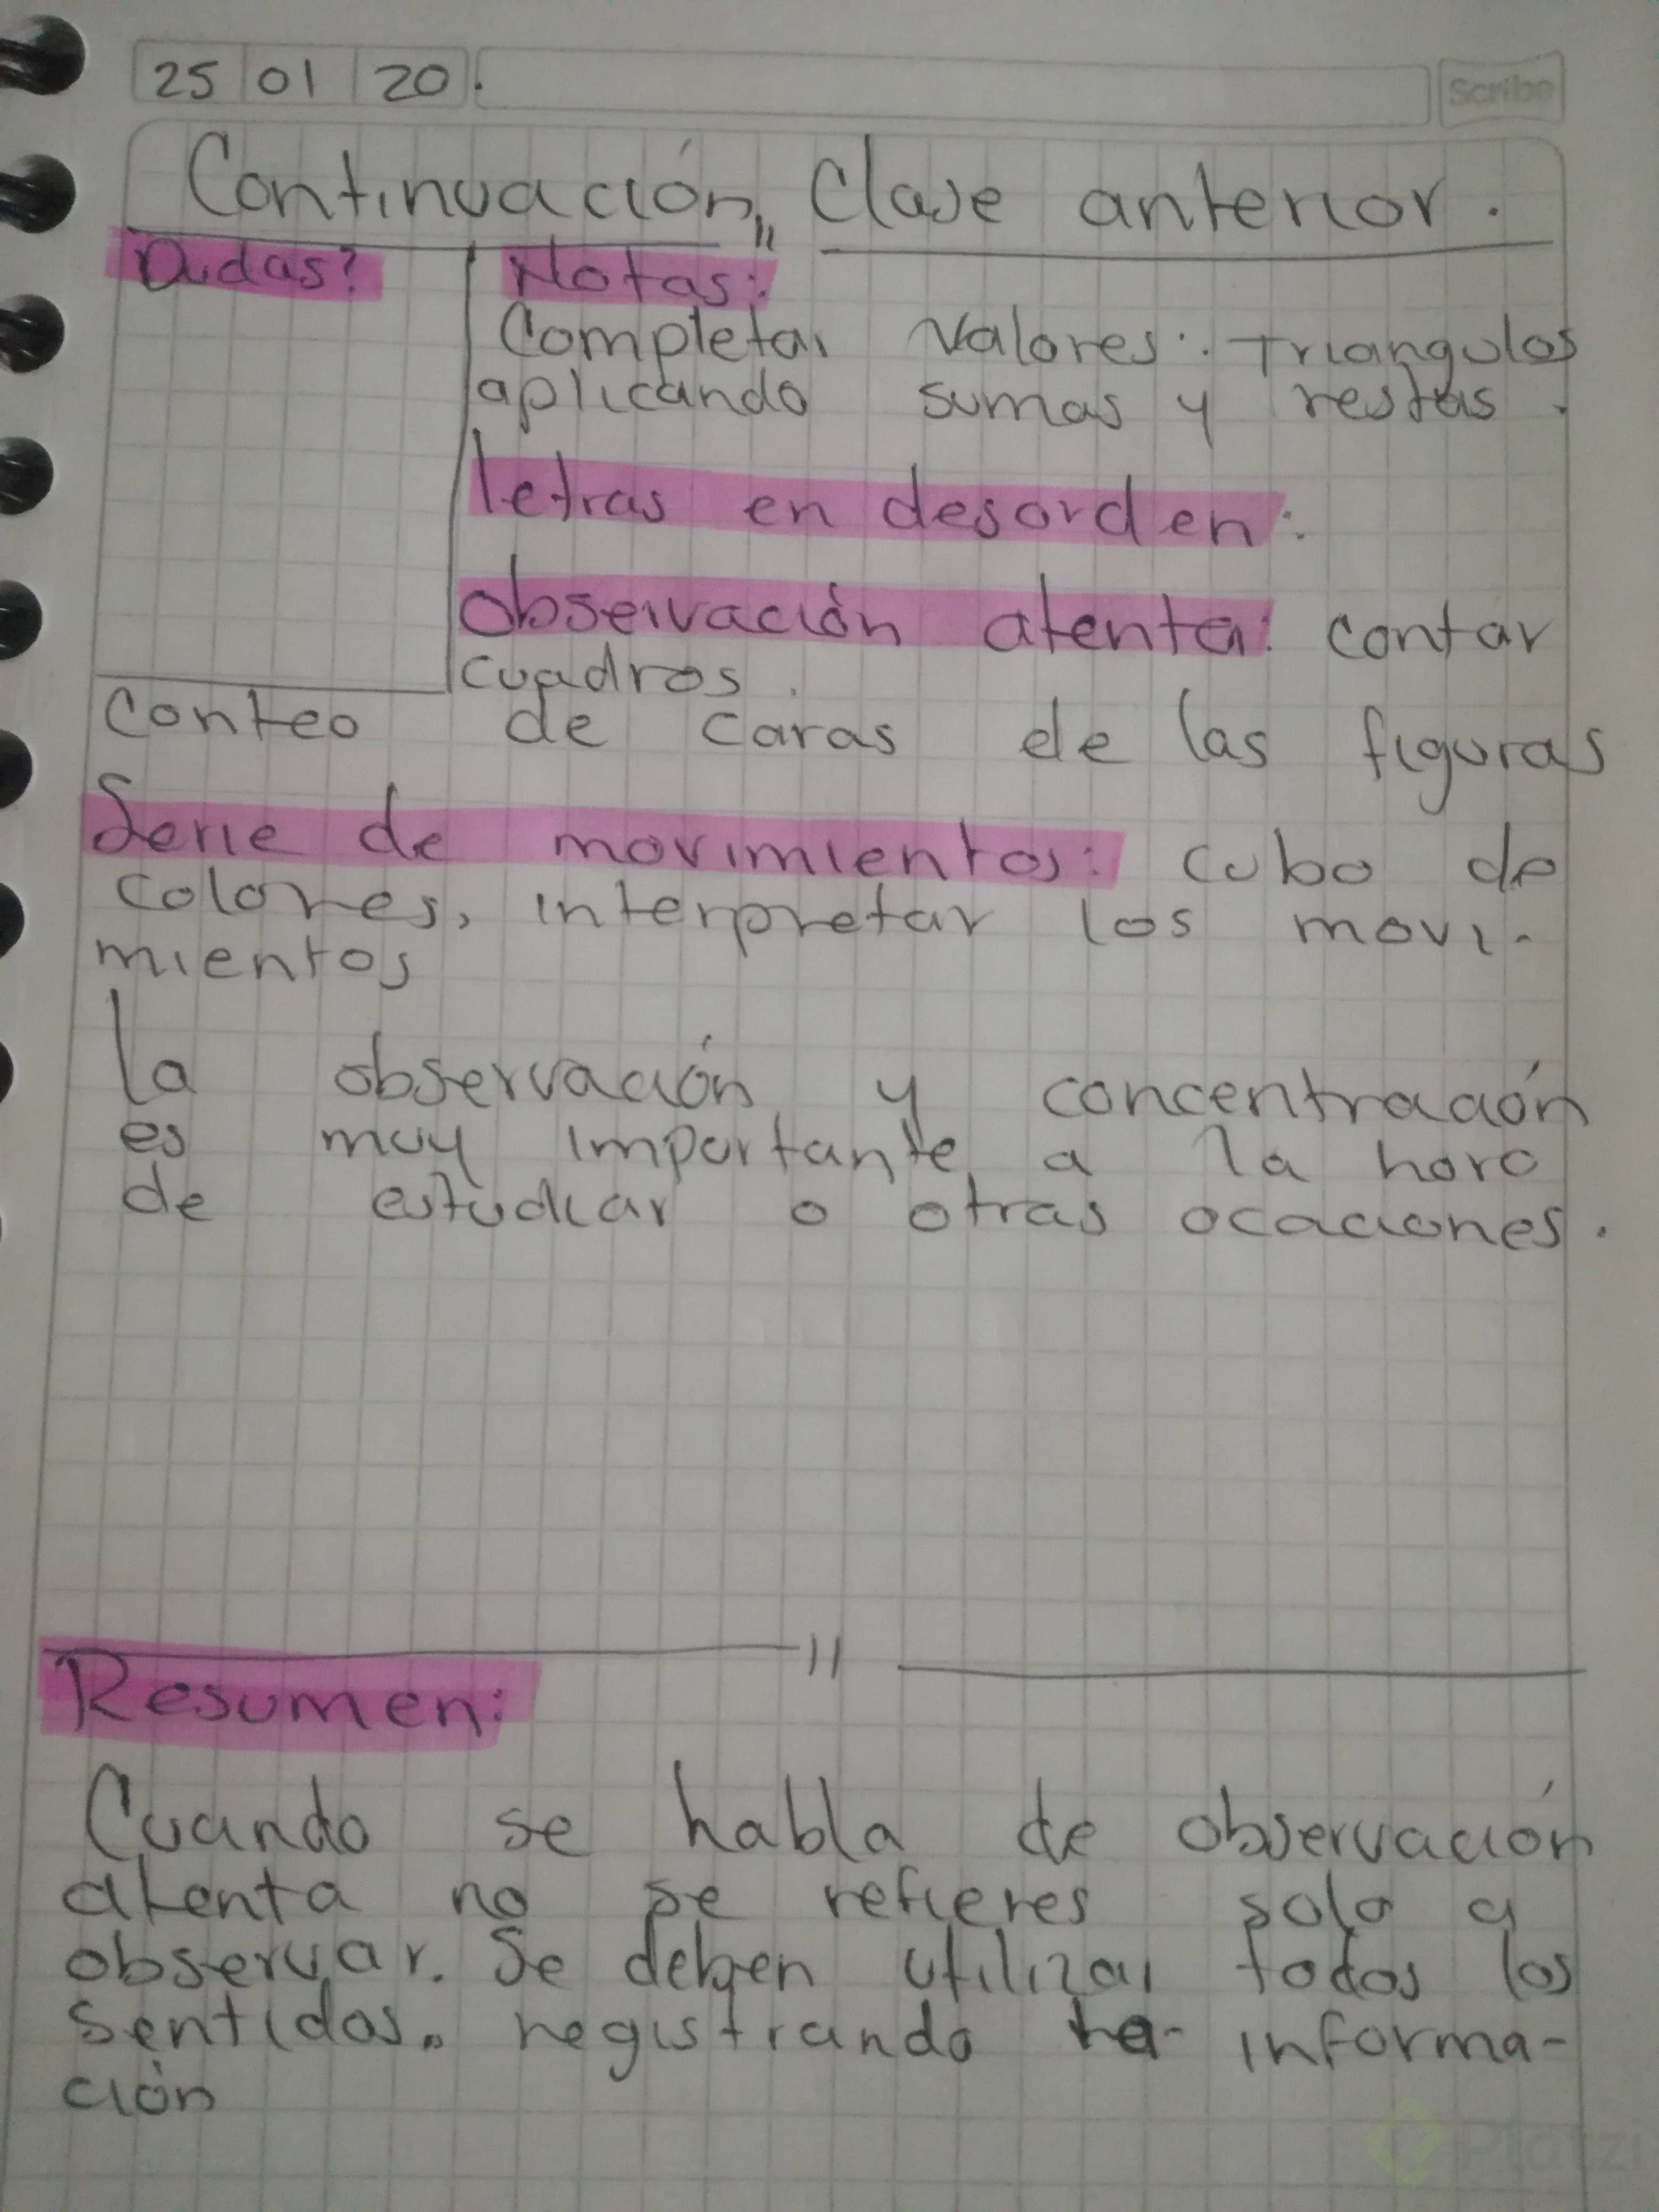 25 01 20.
Scribe
Continuación, Clase anterior.
Dudas?
Notas:
Completar valores: Triangulos
aplicando sumas y restas.
letras en desorden:
observación atenta: contar
cuadros.
conteo de caras de las figuras
Serie de movimientos: cubo de
colores, interpretar los movi-
mientos
la observación y concentración
es muy importante a la hora
de estudiar o otras ocaciones.
Resumen:
Cuando se habla de observación
atenta no se refieres solo a
observar. Se deben utilizar todos los
sentidos. registrando la informa-
ción
Platzi